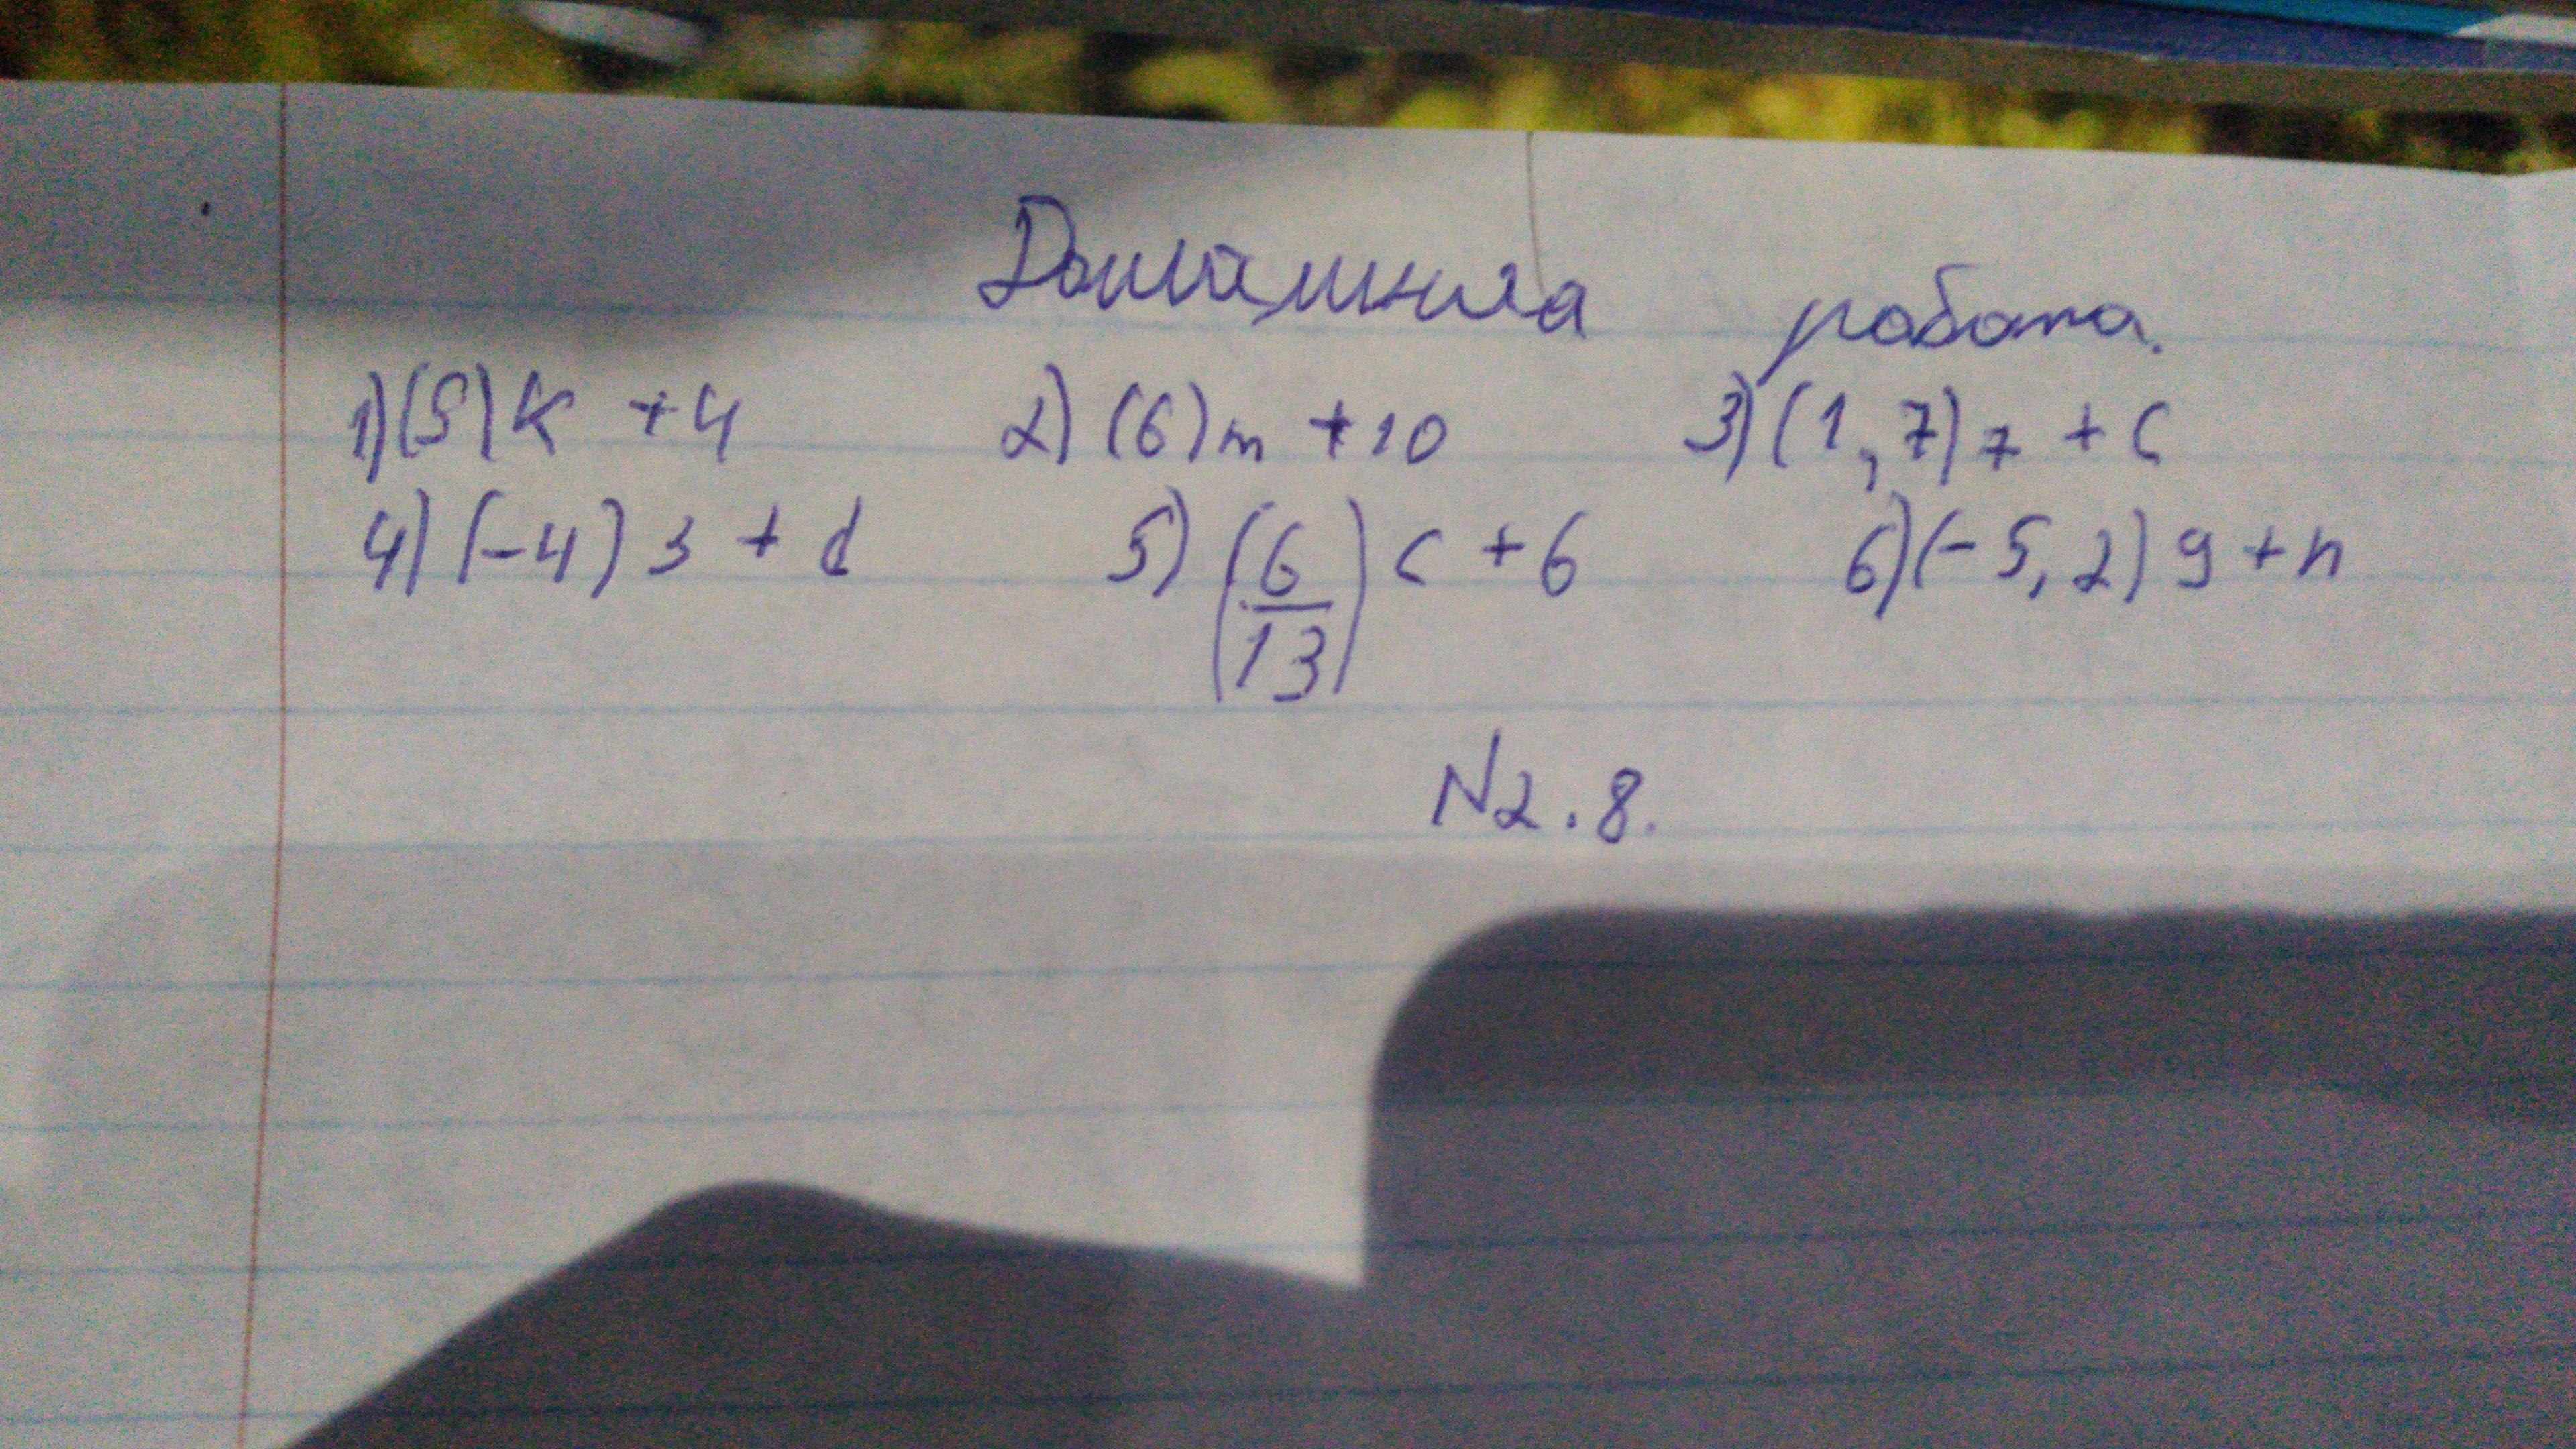 Домашняя работа.
1) (5)k + 4 2) (6)m + 10 3) (1,7)7 + c
4) (-4)3 + d 5) (6/13)c + 6 6) (-5,2)9 + n
N2.8.